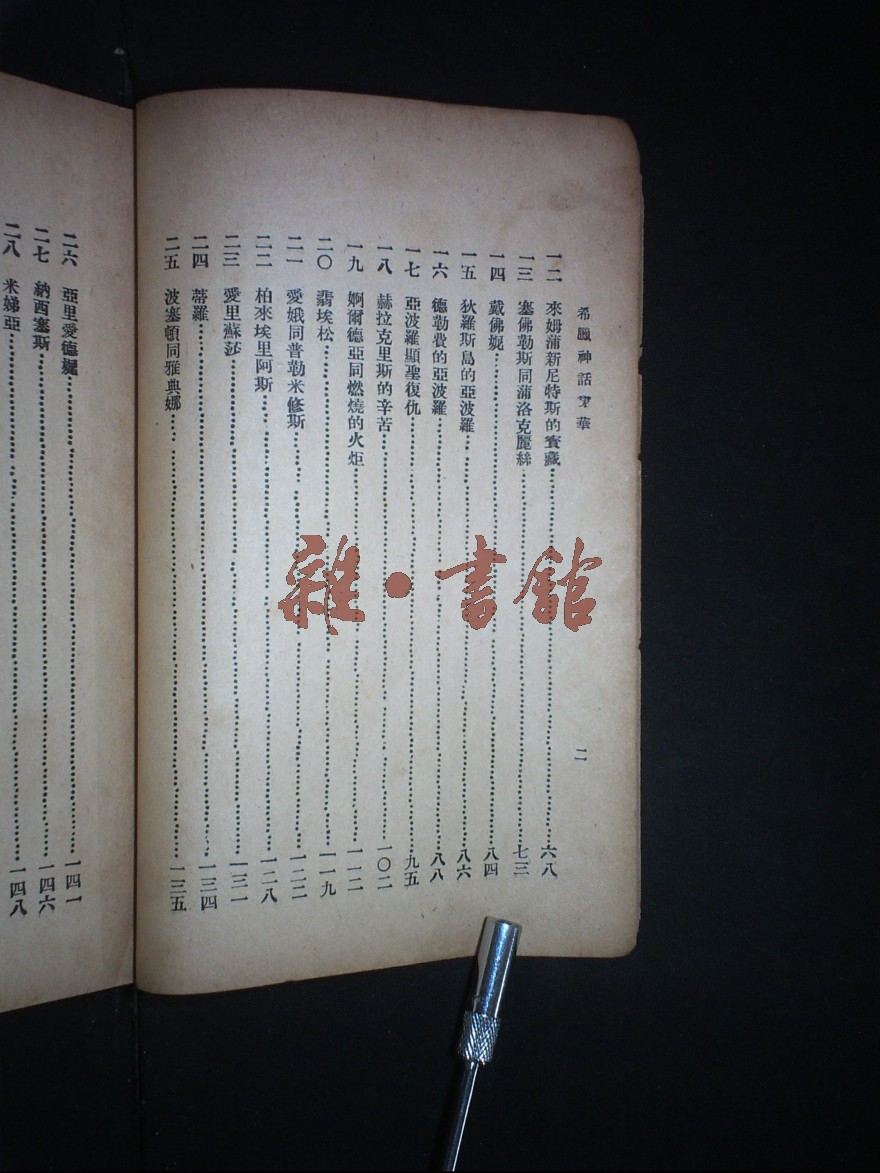 希臘神話菁華
二
一二 來姆蒲新尼特斯的寶藏 六八
一三 塞佛勒斯同蒲洛克麗絲 七三
一四 戴佛妮 八四
一五 狄羅斯島的亞波羅 八六
一六 德勒費的亞波羅 八八
一七 亞波羅顯聖復仇 九五
一八 赫拉克里斯的辛苦 一〇二
一九 婀爾德亞同燃燒的火炬 一一二
二〇 翡埃松 一一九
二一 愛娥同普勒米修斯 一二二
二二 柏來埃里阿斯 一二八
二三 愛里蘇莎 一三一
二四 蒂羅 一三四
二五 波塞頓同雅典娜 一三五
二六 亞里愛德妮 一四一
二七 納西塞斯 一四六
二八 米娣亞 一四八
雜·書館